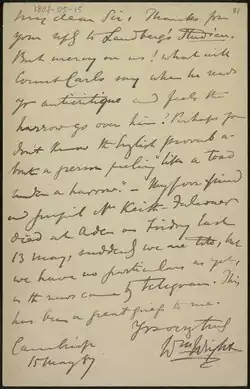 1887-05-15
81
My dear Sir, Thanks for
your to Landberg's Studien.
But mercy on us! what will
Count Carlo say when he reads
yr anticritique and feels the
harrow go over him? Perhaps you
don't know the English proverb a-
bout a person feeling "like a toad
under a harrow". — My poor friend
and pupil Mr Keith Falconer
died at Aden on Friday last
13 May, suddenly we are told, but
we have no particulars as yet,
as the news came by telegram. This
has been a great grief to me.
Yrs very truly
Wm Wright
Cambridge
15 May 87